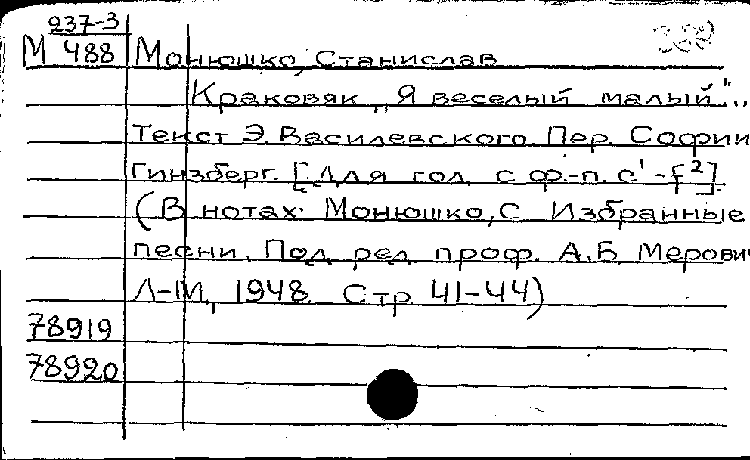 937-3
М 488 Монюшко, Станислав
Краковяк „Я веселый малый"..
Текст Э. Василевского. Пер. Софии
Гинзберг. [Для гол. с ф.-п. c¹-f²].
(В нотах: Монюшко, С. Избранные
песни. Под ред. проф. А.Б. Мерович
Л-М., 1948. Стр. 41-44)
78919
78920